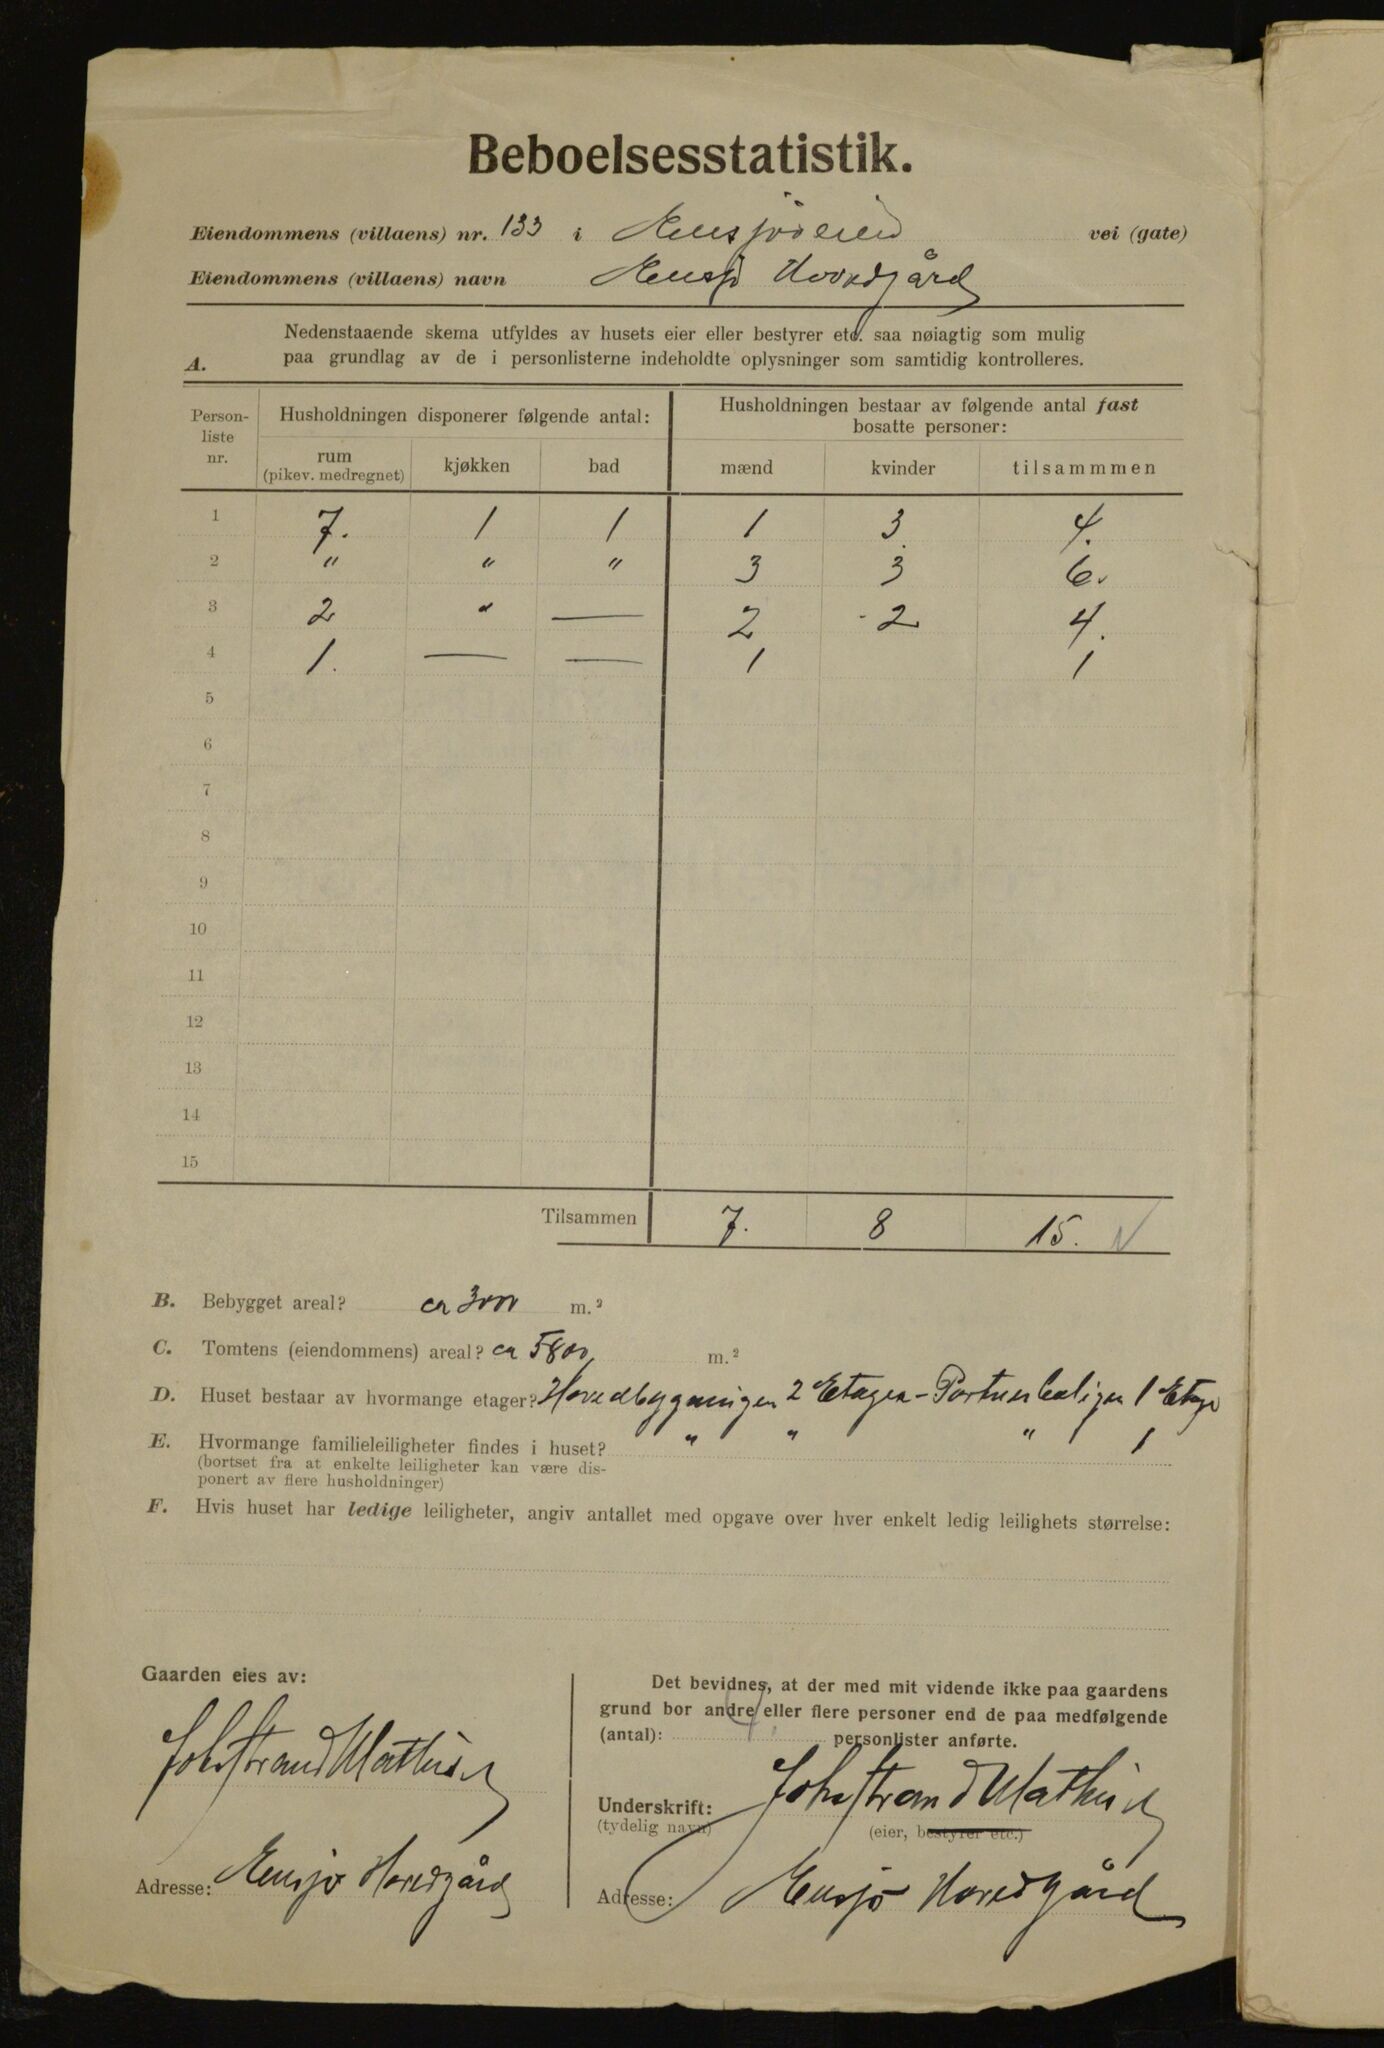 Beboelsesstatistik.
Eiendommens (villaens) nr. 133 i Ensjøveien vei (gate)
Eiendommens (villaens) navn Ensjø Hovedgård
A.
Nedenstaaende skema utfyldes av husets eier eller bestyrer etc. saa nøiagtig som mulig
paa grundlag av de i personlisterne indeholdte oplysninger som samtidig kontrolleres.
Person-
liste
nr.
Husholdningen disponerer følgende antal:
Husholdningen bestaar av følgende antal fast
bosatte personer:
rum
(pikev. medregnet)
kjøkken
bad
mænd
kvinder
tilsammmen
1 7. 1 1 1 3. 4.
2 " " " 3 3 6.
3 2 " — 2 2 4.
4 1. — — 1 1
5
6
7
8
9
10
11
12
13
14
15
Tilsammen 7. 8 15.
B. Bebygget areal? ca 3000 m.²
C. Tomtens (eiendommens) areal? ca 5800 m.²
D. Huset bestaar av hvormange etager? Hovedbygningen 2 Etager - Portnerboligen 1 Etage
E. Hvormange familieleiligheter findes i huset? " " " 1
(bortset fra at enkelte leiligheter kan være dis-
ponert av flere husholdninger)
F. Hvis huset har ledige leiligheter, angiv antallet med opgave over hver enkelt ledig leilighets størrelse:
Gaarden eies av:
Joh Strand Mathisen
Adresse: Ensjø Hovedgård
Det bevidnes, at der med mit vidende ikke paa gaardens
grund bor andre eller flere personer end de paa medfølgende
(antal): 4 personlister anførte.
Underskrift: Joh Strand Mathisen
(tydelig navn)
(eier, bestyrer etc.)
Adresse: Ensjø Hovedgård